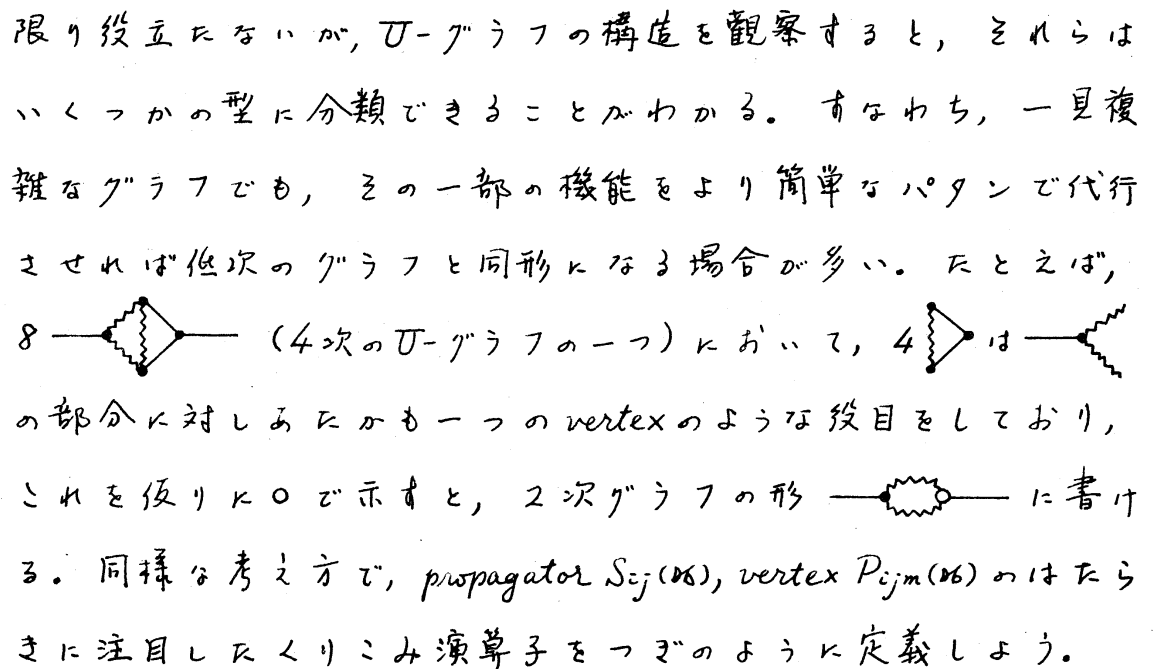 限り役立たないが，U-グラフの構造を観察すると，それらは
いくつかの型に分類できることがわかる。すなわち，一見複
雑なグラフでも，その一部の機能をより簡単なパタンで代行
させれば低次のグラフと同形になる場合が多い。たとえば，
8（4次のU-グラフの一つ）において，4は
の部分に対しあたかも一つのvertexのような役目をしており，
これを仮りに○で示すと，2次グラフの形に書け
る。同様な考え方で，propagator Sij()，vertex Pijm()のはたら
きに注目したくりこみ演算子をつぎのように定義しよう。